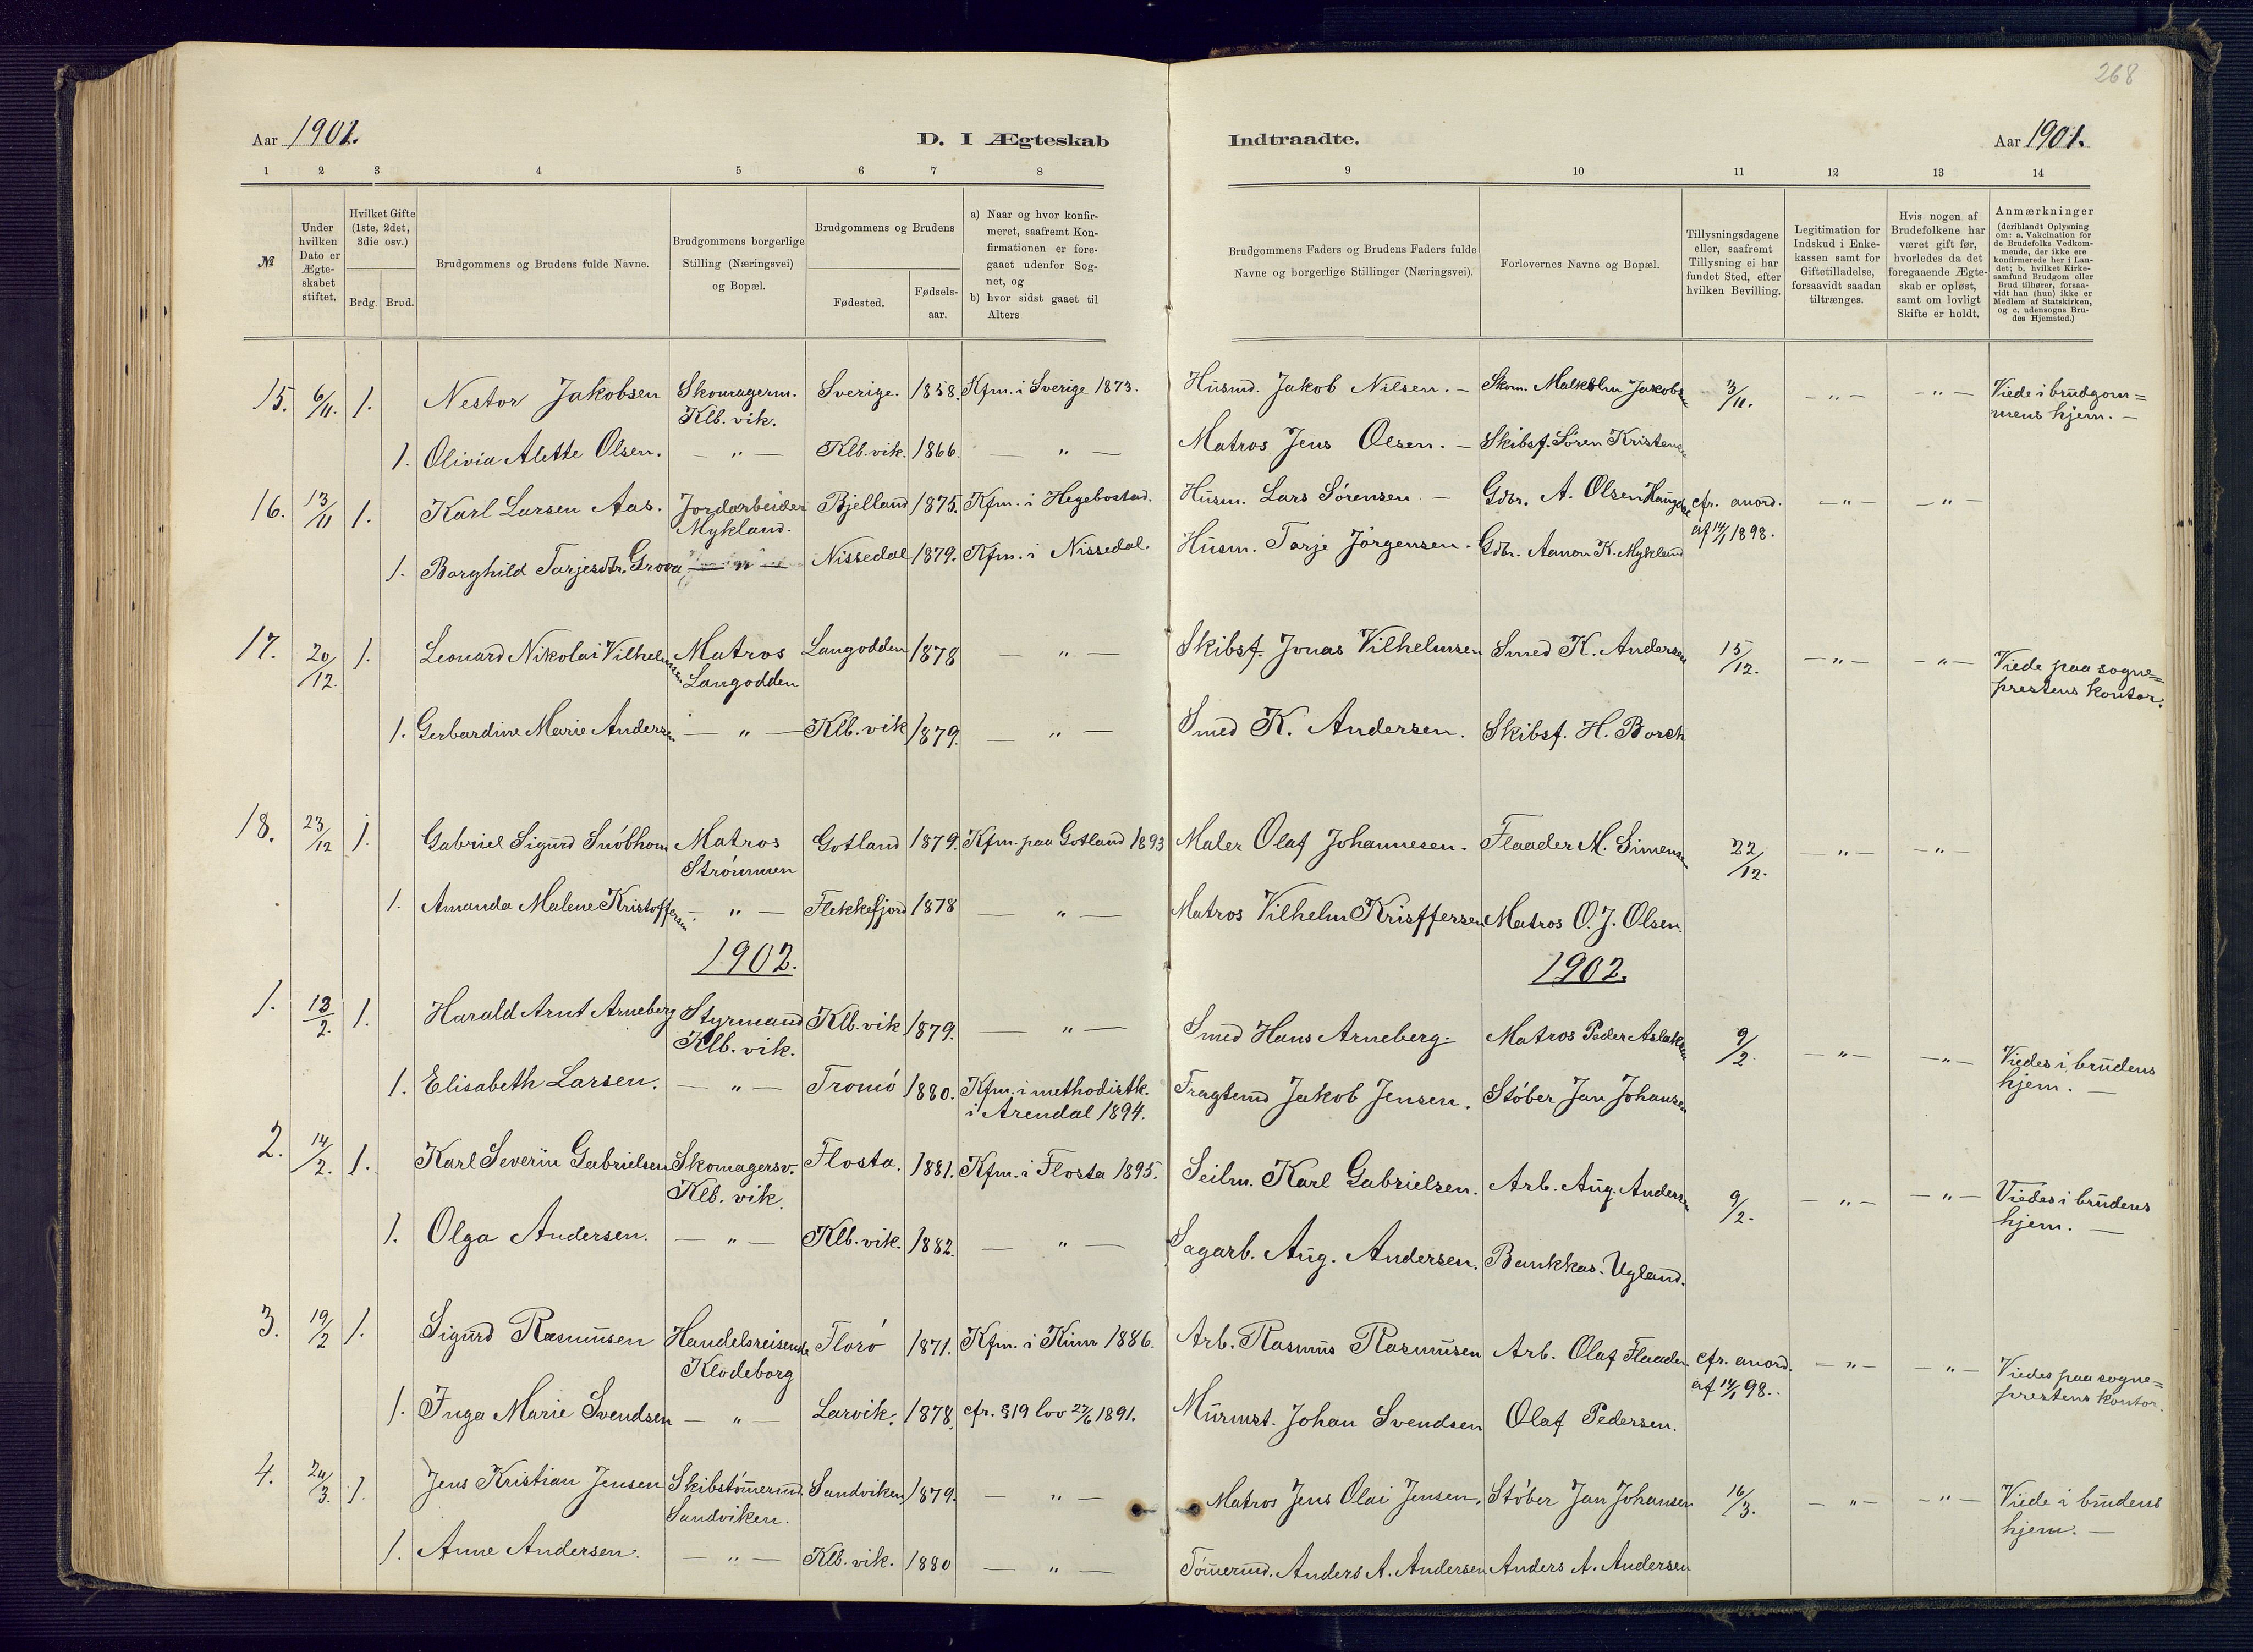 268
Aar 1901. D. I Ægteskab Indtraadte. Aar 1901.
1 2 3 4 5 6 7 8 9 10 11 12 13 14
№
Under
hvilken
Dato er
Ægte-
skabet
stiftet.
Hvilket Gifte
(1ste, 2det,
3die osv.)
Brdg. Brud.
Brudgommens og Brudens fulde Navne.
Brudgommens borgerlige
Stilling (Næringsvei)
og Bopæl.
Brudgommens og Brudens
Fødested.
Fødsels-
aar.
a) Naar og hvor konfir-
meret, saafremt Kon-
firmationen er fore-
gaaet udenfor Sog-
net, og
b) hvor sidst gaaet til
Alters
Brudgommens Faders og Brudens Faders fulde
Navne og borgerlige Stillinger (Næringsvei).
Forlovernes Navne og Bopæl.
Tillysningsdagene
eller, saafremt
Tillysning ei har
fundet Sted, efter
hvilken Bevilling.
Legitimation for
Indskud i Enke-
kassen samt for
Giftetilladelse,
forsaavidt saadan
tiltrænges.
Hvis nogen af
Brudefolkene har
været gift før,
hvorledes da det
foregaaende Ægte-
skab er opløst,
samt om lovligt
Skifte er holdt.
Anmærkninger
(deriblandt Oplysning
om: a. Vakcination for
de Brudefolks Vedkom-
mende, der ikke ere
konfirmerede her i Lan-
det; b. hvilket Kirke-
samfund Brudgom eller
Brud tilhører, forsaa-
vidt han (hun) ikke er
Medlem af Statskirken,
og c. udensogns Bru-
des Hjemsted.)
15. 6/11. 1. Nestor Jakobsen Skomagerm. Sverige. 1858. Kfm. i Sverige 1873. Husmd. Jakob Nilsen. — Skom. Malkolm Jakobsen 3/11. — " — — " — Viede i brudgom=
Klb. vik. mens hjem. —
1. Olivia Alette Olsen. — " — Klb. vik. 1866. — " — Matros Jens Olsen. — Skibsf. Søren Kristensen
16. 13/11 1. Karl Larsen Aas. Jordarbeider Bjelland 1875. Kfm. i Hegebostad. Husm. Lars Sørensen — Gdbr. A. Olsen cfr. anord. — " — — " —
Mykland. af 14/1 1898.
1. Borghild Tarjesdtr. Grova — " — Nissedal 1879. Kfm. i Nissedal. Husm. Tarje Jörgensen. Gdbr. Aanon K. Mykland
17. 20/12. 1. Leonard Nikolai Vilhelmsen Matros Langodden 1878 — " — Skibsf. Jonas Vilhelmsen Smed K. Andersen 15/12. — " — — " — Viede paa sogne=
Langodden prestens kontor.
1. Gerhardine Marie Andersen — " — Klb. vik 1879. — " — Smed K. Andersen. Skibsf. H. Borch
18. 23/12 1. Gabriel Sigurd Snöbhom Matros Gotland 1879. Kfm. paa Gotland 1893 Maler Olaf Johannesen. Flaader M. Simensen 22/12. — " — — " —
Strömmen
1. Amanda Malene Kristoffersen — " — Flekkefjord 1878 — " — Matros Vilhelm Krisffersen Matros O. J. Olsen.
1902. 1902.
1. 13/2. 1. Harald Arnt Arneberg Styrmand Klb. vik 1879. — " — Smed Hans Arneberg. Matros Peder Aslaksen 9/2. — " — — " — Viedes i brudens
Klb. vik. hjem. —
1. Elisabeth Larsen. — " — Tromö 1880. Kfm. i methodistk. Fragtemd Jakob Jensen. Stöber Jan Johansen
i Arendal 1894.
2. 14/2. 1. Karl Severin Gabrielsen Skomagersv. Flosta. 1881. Kfm. i Flosta 1895. Seilm. Karl Gabrielsen. Arb. Aug. Andersen 9/2. — " — — " — Viedes i brudens
Klb. vik. hjem. —
1. Olga Andersen. — " — Klb. vik. 1882. — " — Sagarb. Aug. Andersen. Bankkas. Ugland.
3. 19/2 1. Sigurd Rasmusen Handelsreisende Florö 1871. Kfm. i Kinn 1886. Arb. Rasmus Rasmusen Arb. Olaf Flaaden cfr. anord. — " — — " — Viedes paa sogne=
Klodeborg af 14/1 98. prestens kontor.
1. Inga Marie Svendsen — " — Larvik. 1878. cfr. §19 lov 27/6 1891. Murmst. Johan Svendsen Olaf Pedersen.
4. 20/3. 1. Jens Kristian Jensen Skibstömermd. Sandviken 1879. — " — Matros Jens Olai Jensen. Stöber Jan Johansen 16/3. — " — — " — Viede i brudens
Sandviken. hjem. —
1. Anne Andersen. — " — Klb. vik. 1880 — " — Tömermd. Anders A. Andersen Anders A. Andersen